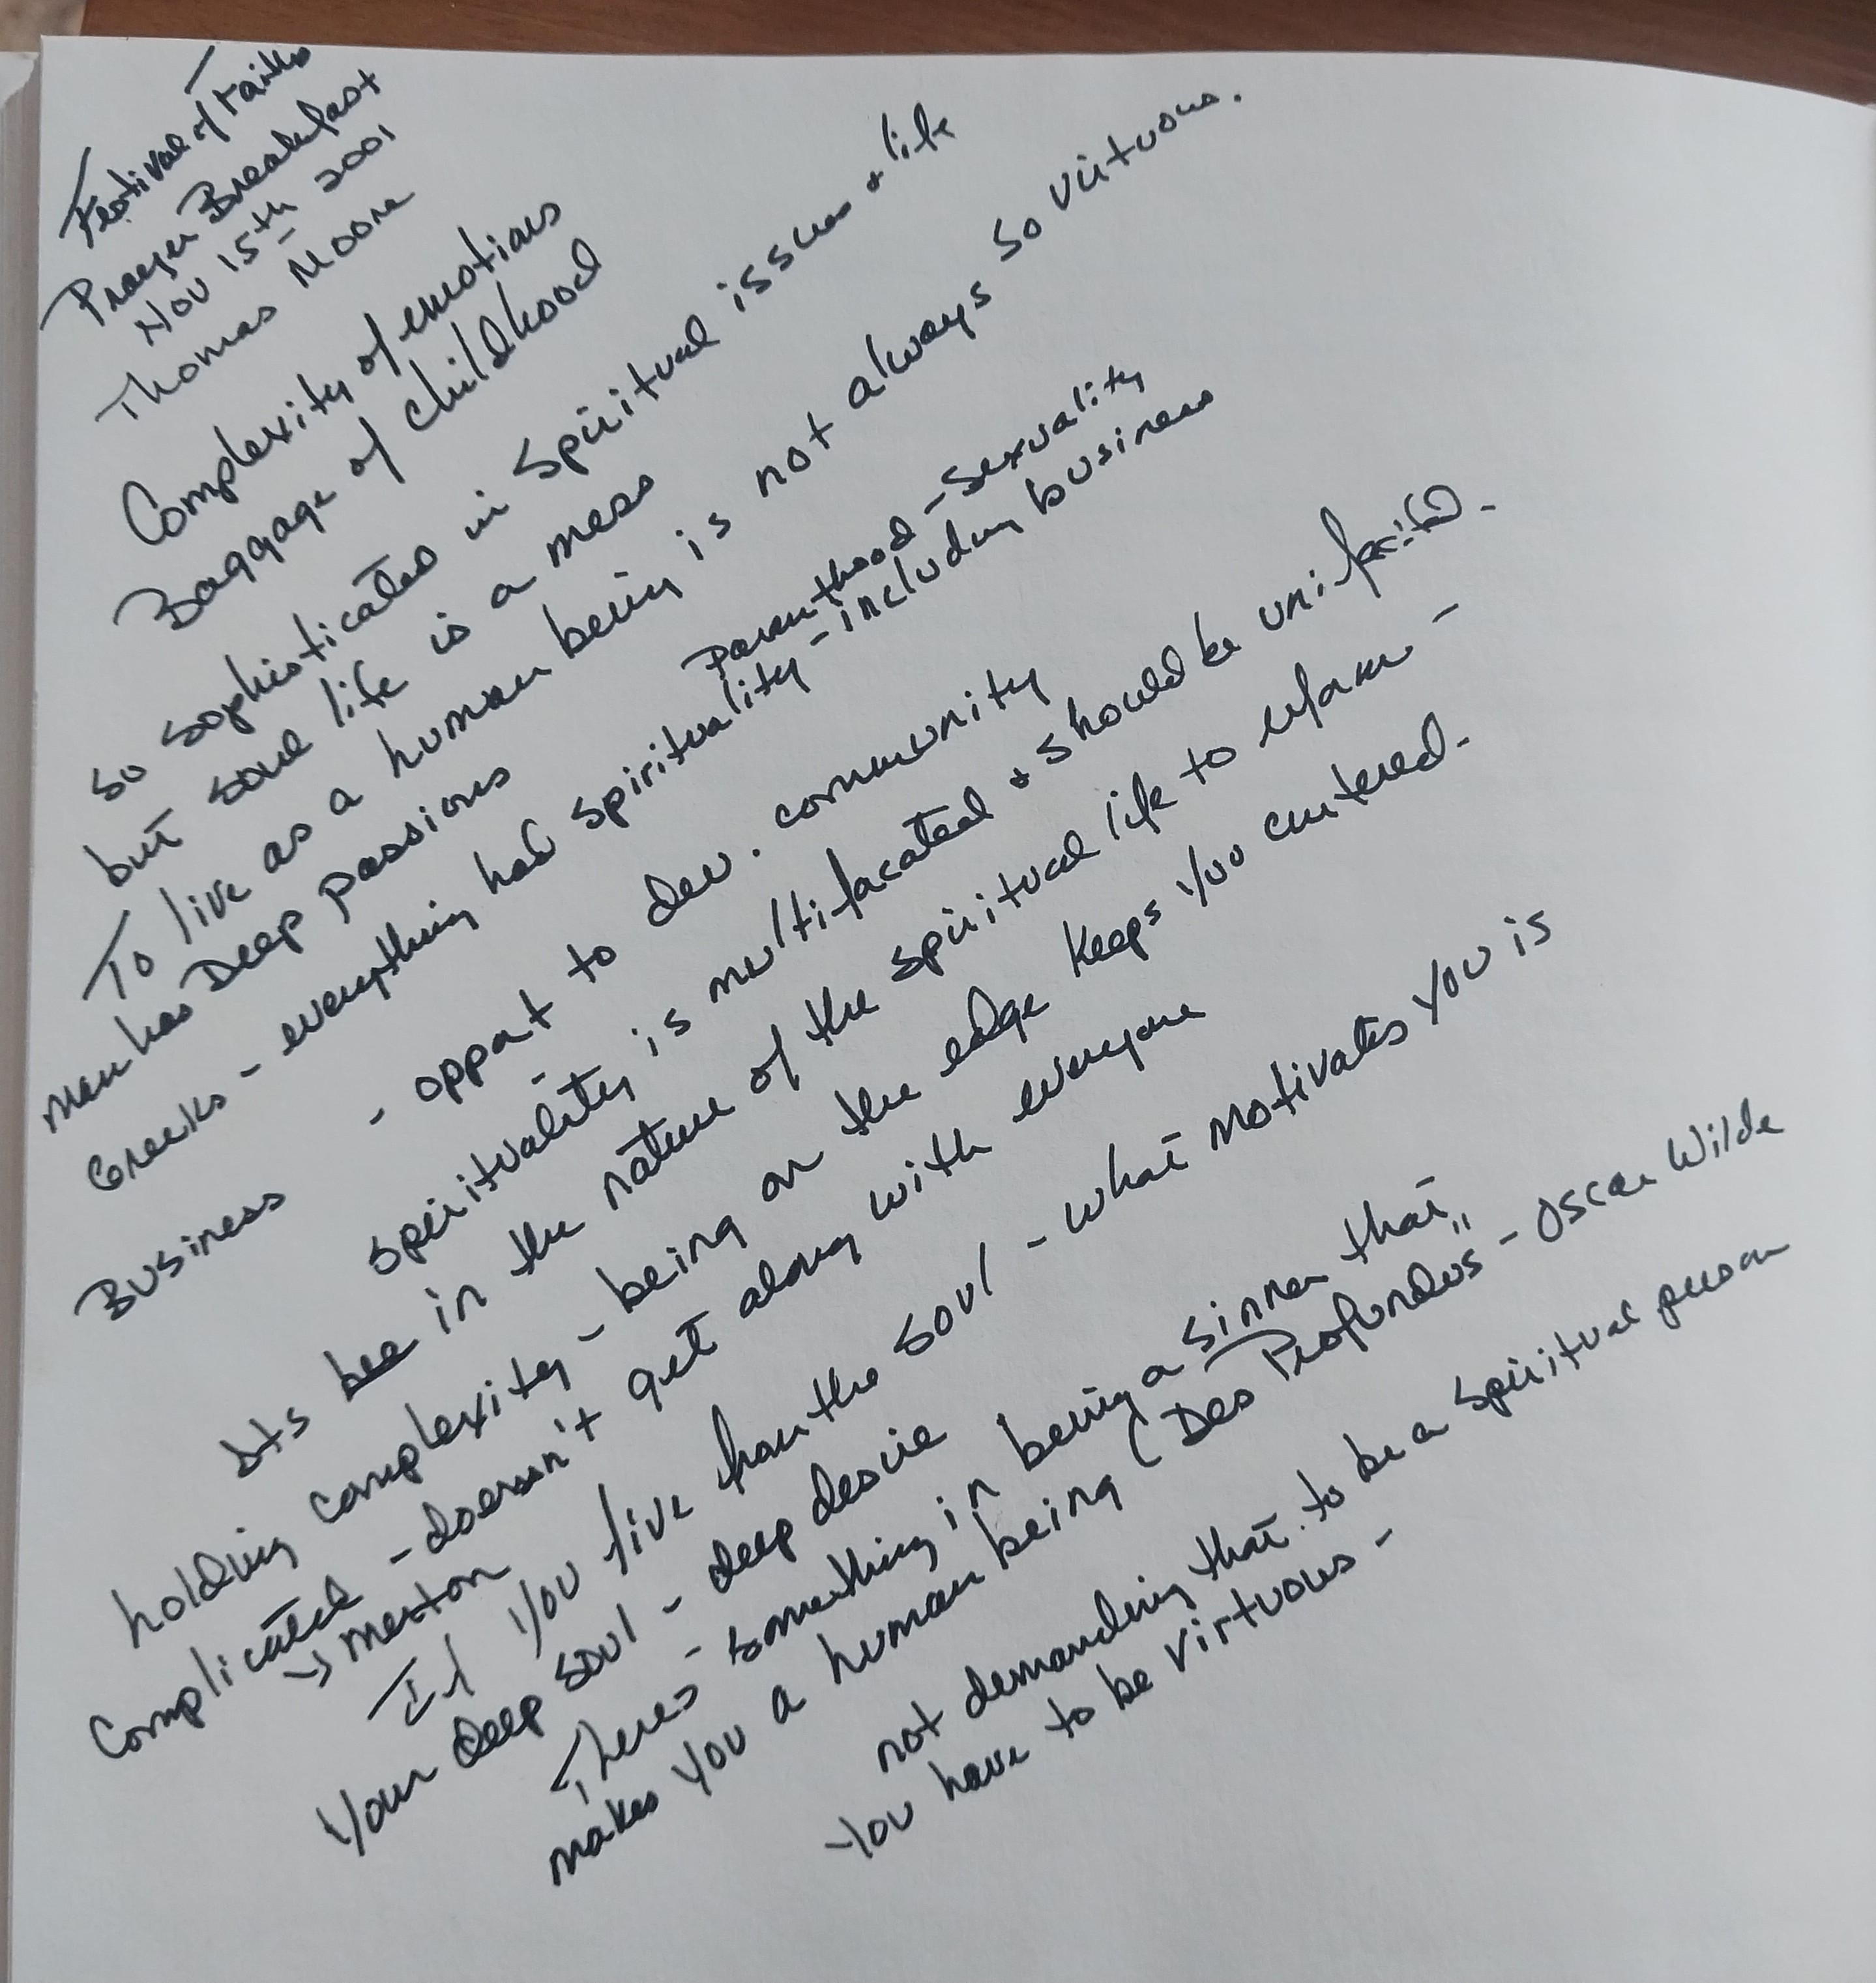 Festival of Faiths
Prayer Breakfast
Nov 15th 2001
Thomas Moore
Complexity of emotions
Baggage of childhood
so sophisticated in spiritual issues + life
but soul life is a mess
To live as a human being is not always so virtuous.
man has Deep passions
Parenthood - sexuality
Greeks - everything had spirituality - including business
Business - opport to dev. community
spirituality is multifacated + should be uni-
Its in the nature of the spiritual life to reform -
holding complexity - being on the edge keeps you centered.
Complicated - doesn't get along with everyone
→ merton
If you live from the soul - what motivates you is
your deep soul - deep desire
Theres - something in being a sinner that
makes you a human being (Des Profundus - Oscar Wilde
not demanding that to be a spiritual person
you have to be virtuous -